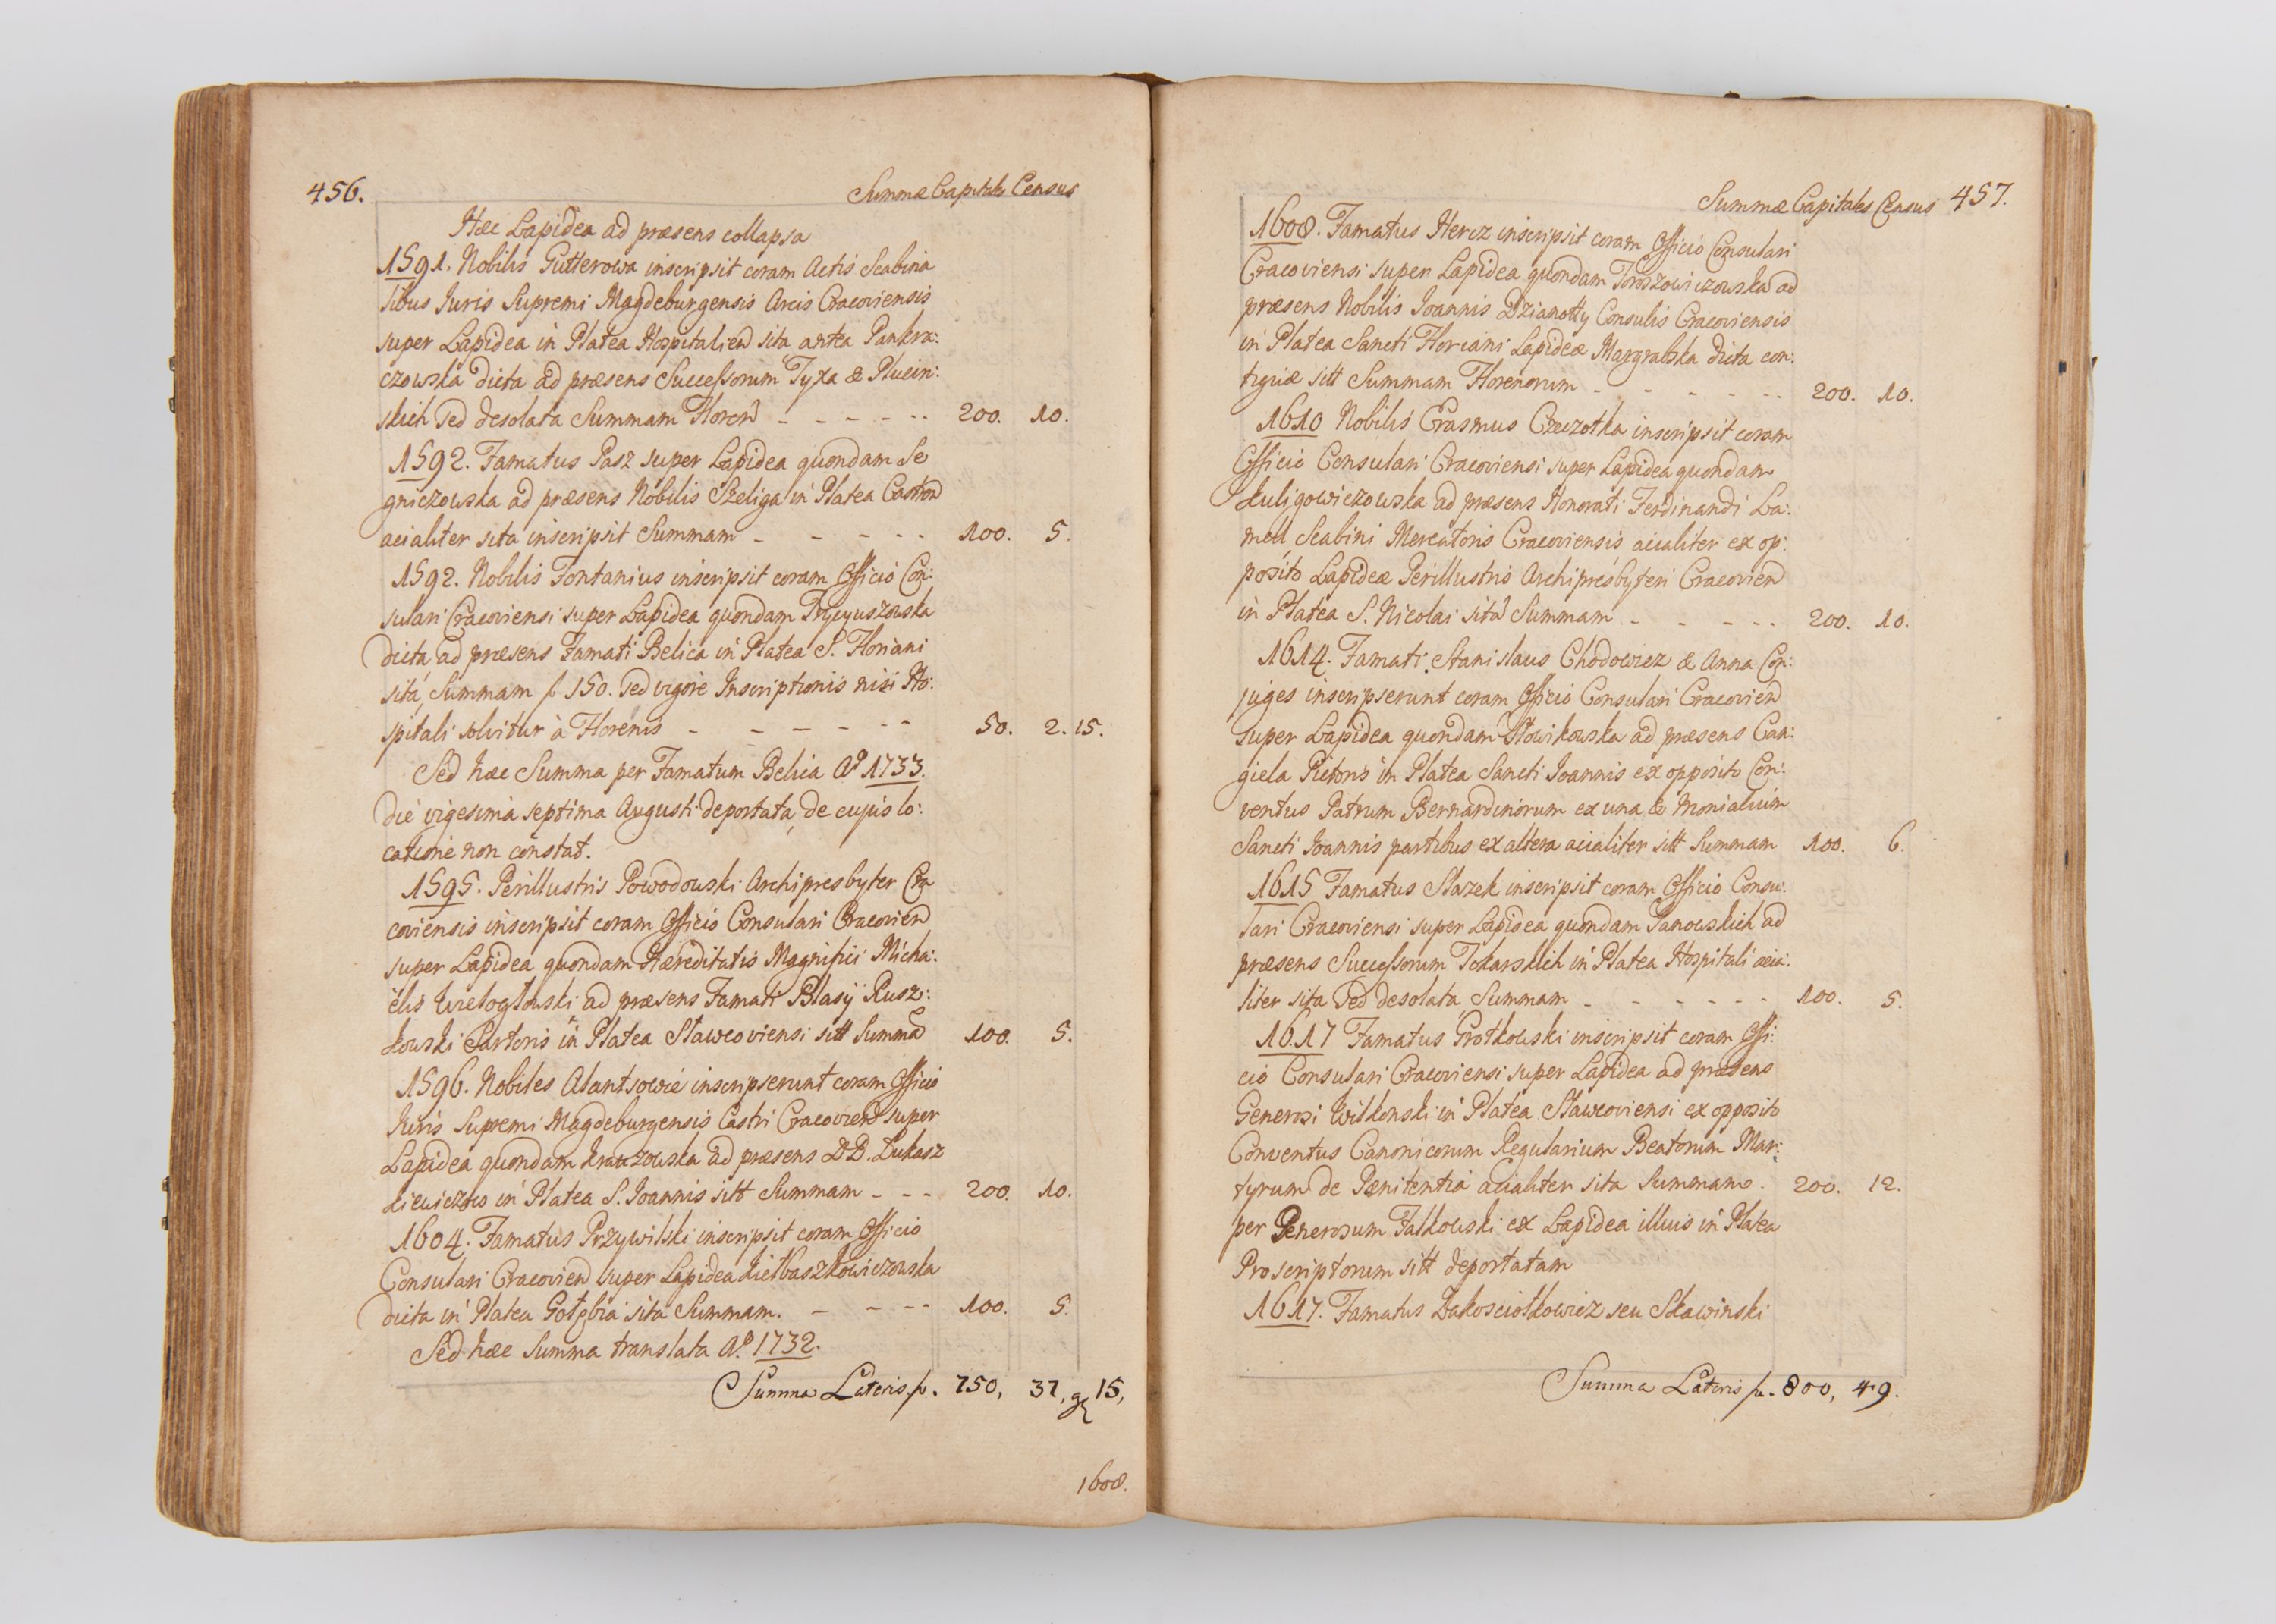 456. Summæ Capitales Census
Hæc Lapidea ad præsens collapsa
1591. Nobilis Gutterowa inscripsit coram Actis Scabina
libus Iuris Supremi Magdeburgensis Arcis Cracoviensis
super Lapidea in Platea Hospitalien sita antea Pankra:
czowska dicta ad præsens Successorum Tyxa & Plucin:
skich sed desolata Summam Floren - - - - - - 200. 10.
1592. Famatus Pasz super Lapidea quondam Se
gniczowska ad præsens Nobilis Szeliga in Platea Castren
acialiter sita inscripsit Summam - - - - - 100. 5.
1592. Nobilis Fontanius inscripsit coram Officio Con:
sulari Cracoviensi super Lapidea quondam
dicta ad præsens Famati Belica in Platea S. Floriani
sita, Summam f 150. sed vigore Inscriptionis nisi Ho:
spitali solvitur à Florenis - - - - - - 50. 2. 15.
Sed hæc Summa per Famatum Belica Aº 1733.
die vigesima septima Augusti deportata, de cujus lo:
catione non constat.
1595. Perillustris Powodowski Archipresbyter Cra
coviensis inscripsit coram Officio Consulari Cracovien
super Lapidea quondam Hæreditatis Magnifici Micha:
elis Wielogłowski, ad præsens Famati Blasÿ Rusz:
kowski Sartoris in Platea Slawcoviensi sitt Summa 100. 5.
1596. Nobiles Alantsowie inscripserunt coram Officio
Juris Supremi Magdeburgensis Castri Cracovien super
Lapidea quondam Krauzowska ad præsens DD. Lukasz
kiewiczow in Platea S. Joannis sitt Summam - - - 200. 10.
1604. Famatus Przywilski inscripsit coram Officio
Consulari Cracovien super Lapidea Kiełbaszkowiczowska
dicta in Platea Gołębia sita Summam. - - - - 100. 5.
Sed hæc Summa translata Aº 1732.
Summa Lateris f. 750, 37, g 15,
1608.
Summæ Capitales Census 457.
1608. Famatus Hercz inscripsit coram Officio Consulari
Cracoviensi super Lapidea quondam Toroszowiczowska ad
præsens Nobilis Joannis Dzianotty Consulis Cracoviensis
in Platea Sancti Floriani Lapideæ Margrabska dicta con:
tiguæ sitt Summam Florenorum - - - - - - 200. 10.
1610 Nobilis Erasmus Czeczotka inscripsit coram
Officio Consulari Cracoviensi super Lapidea quondam
Kuligowiczowska ad præsens Honorati Ferdinandi La:
meli Scabini Mercatoris Cracoviensis acialiter ex op:
posito Lapideæ Perillustris Archipresbyteri Cracovien
in Platea S. Nicolai sita Summam - - - - - 200. 10.
1614. Famati Stanislaus Chodowicz & Anna Con:
juges inscripserunt coram Officio Consulari Cracovien
super Lapidea quondam Słowikowska ad præsens Can:
giela Pictoris in Platea Sancti Joannis ex opposito Con:
ventus Patrum Bernardinorum ex una & Monialium
Sancti Joannis partibus ex altera acialiter sitt Summam 100. 6.
1615 Famatus Slazek inscripsit coram Officio Consu:
lari Cracoviensi super Lapidea quondam Janowskich ad
præsens Successorum Tokarskich in Platea Hospitali acia:
liter sita sed desolata, Summam - - - - - - 100. 5.
1617 Famatus Grotkowski inscripsit coram Offi:
cio Consulari Cracoviensi super Lapidea ad præsens
Generosi Wilkonski in Platea Slawcoviensi ex opposito
Conventus Canonicorum Regularium Beatorum Mar:
tyrum de Pænitentia acialiter sita Summam. 200. 12.
per Generosum Falkowski ex Lapidea illius in Platea
Proscriptorum sitt deportatam
1617. Famatus Zakosciołkowicz seu Skawinski
Summa Lateris f. 800, 49.